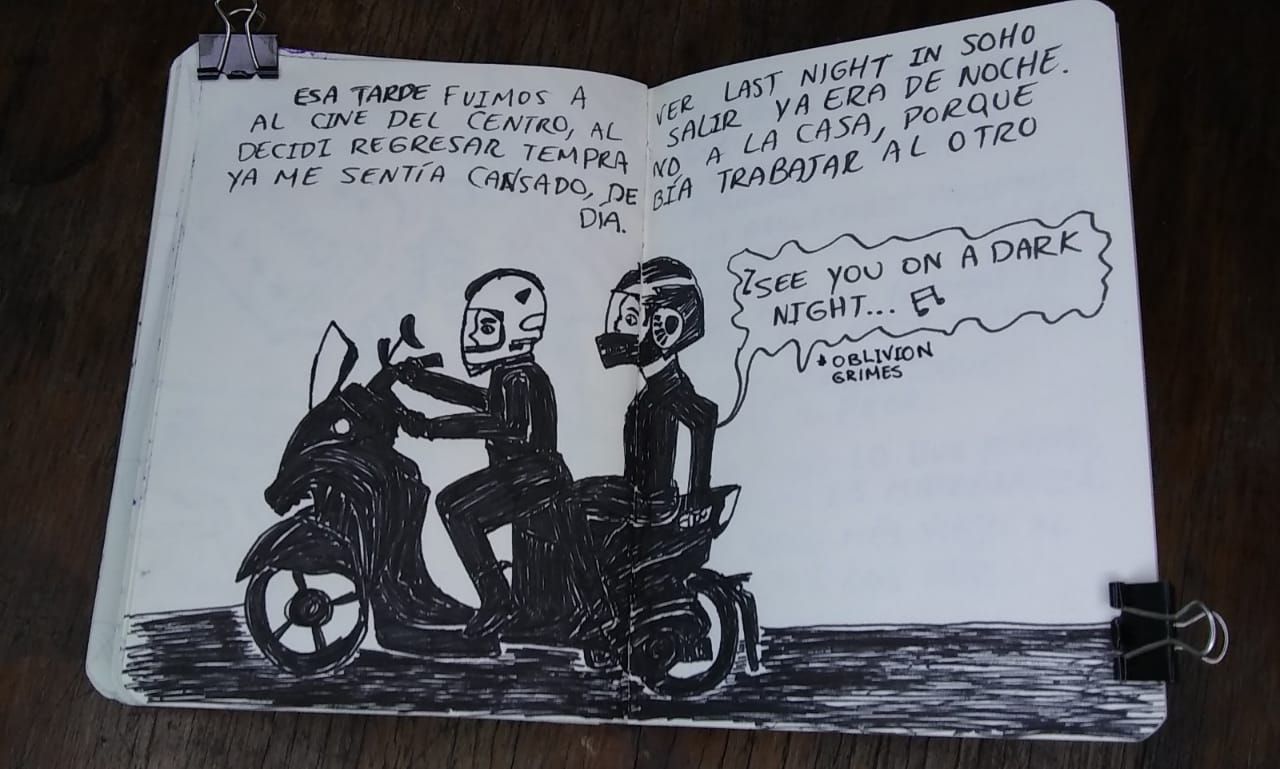 ESA TARDE FUIMOS A VER LAST NIGHT IN SOHO
AL CINE DEL CENTRO, AL SALIR YA ERA DE NOCHE.
DECIDI REGRESAR TEMPRANO, A LA CASA, PORQUE
YA ME SENTÍA CANSADO, DEBÍA TRABAJAR AL OTRO
DÍA.
I SEE YOU ON A DARK
NIGHT...
OBLIVION
GRIMES